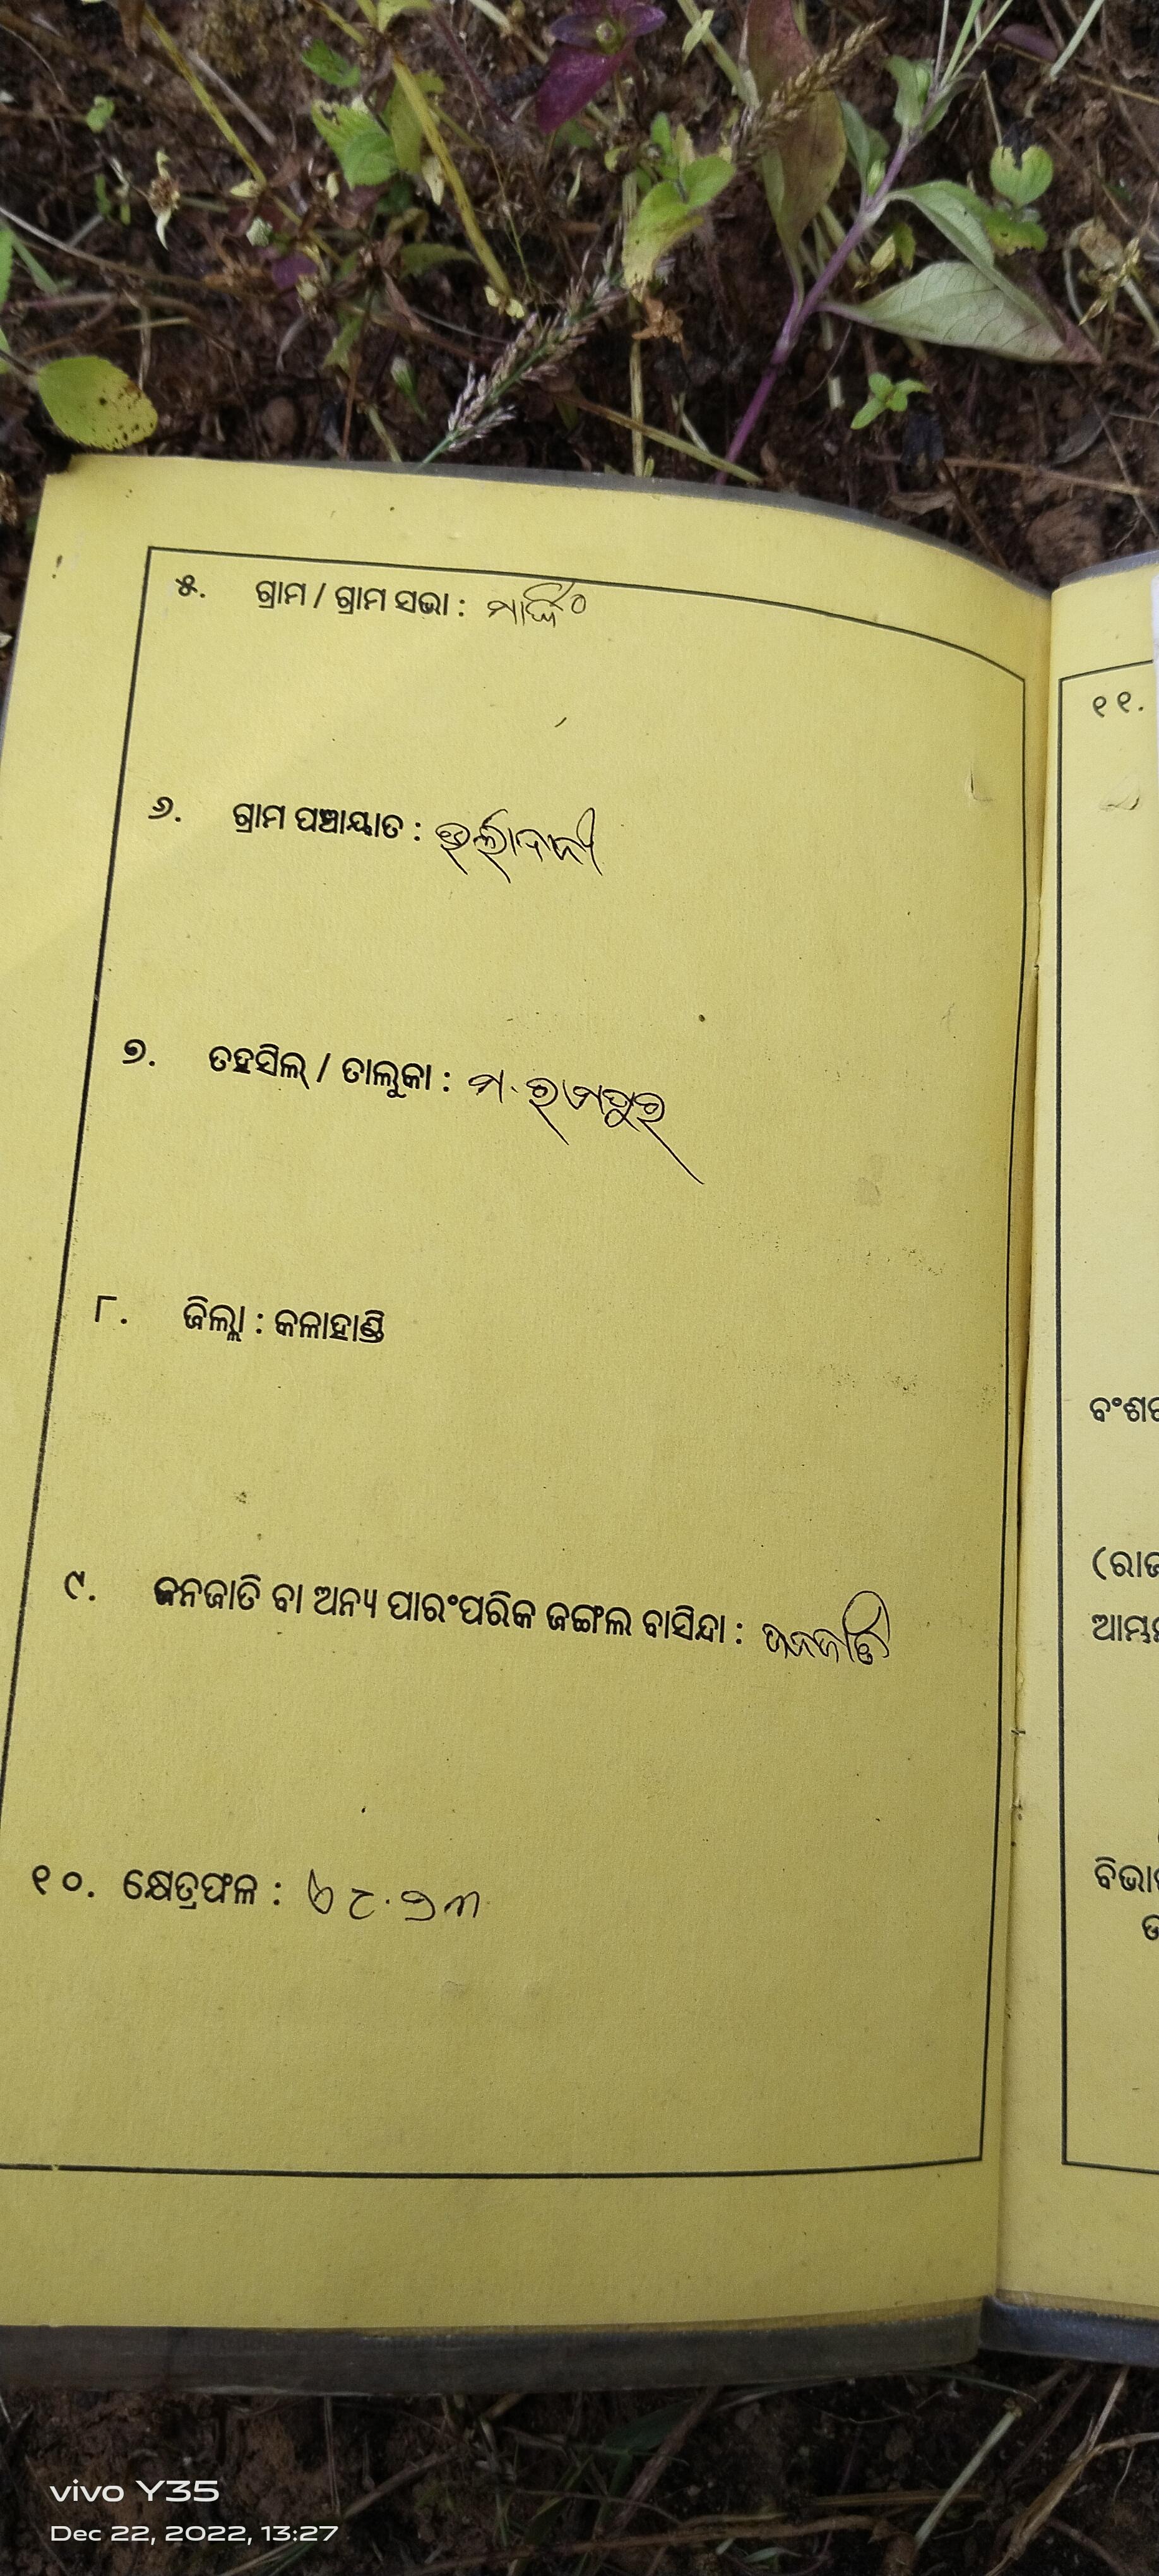 ୫. ଗ୍ରାମ / ଗ୍ରାମ ସଭା :
୬. ଗ୍ରାମ ପଞ୍ଚାୟାତ :
୭. ତହସିଲ୍ / ତାଲୁକା : ମ. ରାମପୁର
୮. ଜିଲ୍ଲା : କଳାହାଣ୍ଡି
୯. ଜନଜାତି ବା ଅନ୍ୟ ପାରଂପରିକ ଜଙ୍ଗଲ ବାସିନ୍ଦା : ଜନଜାତି
୧୦. କ୍ଷେତ୍ରଫଳ :
୧୧.
vivo Y35
Dec 22, 2022, 13:27